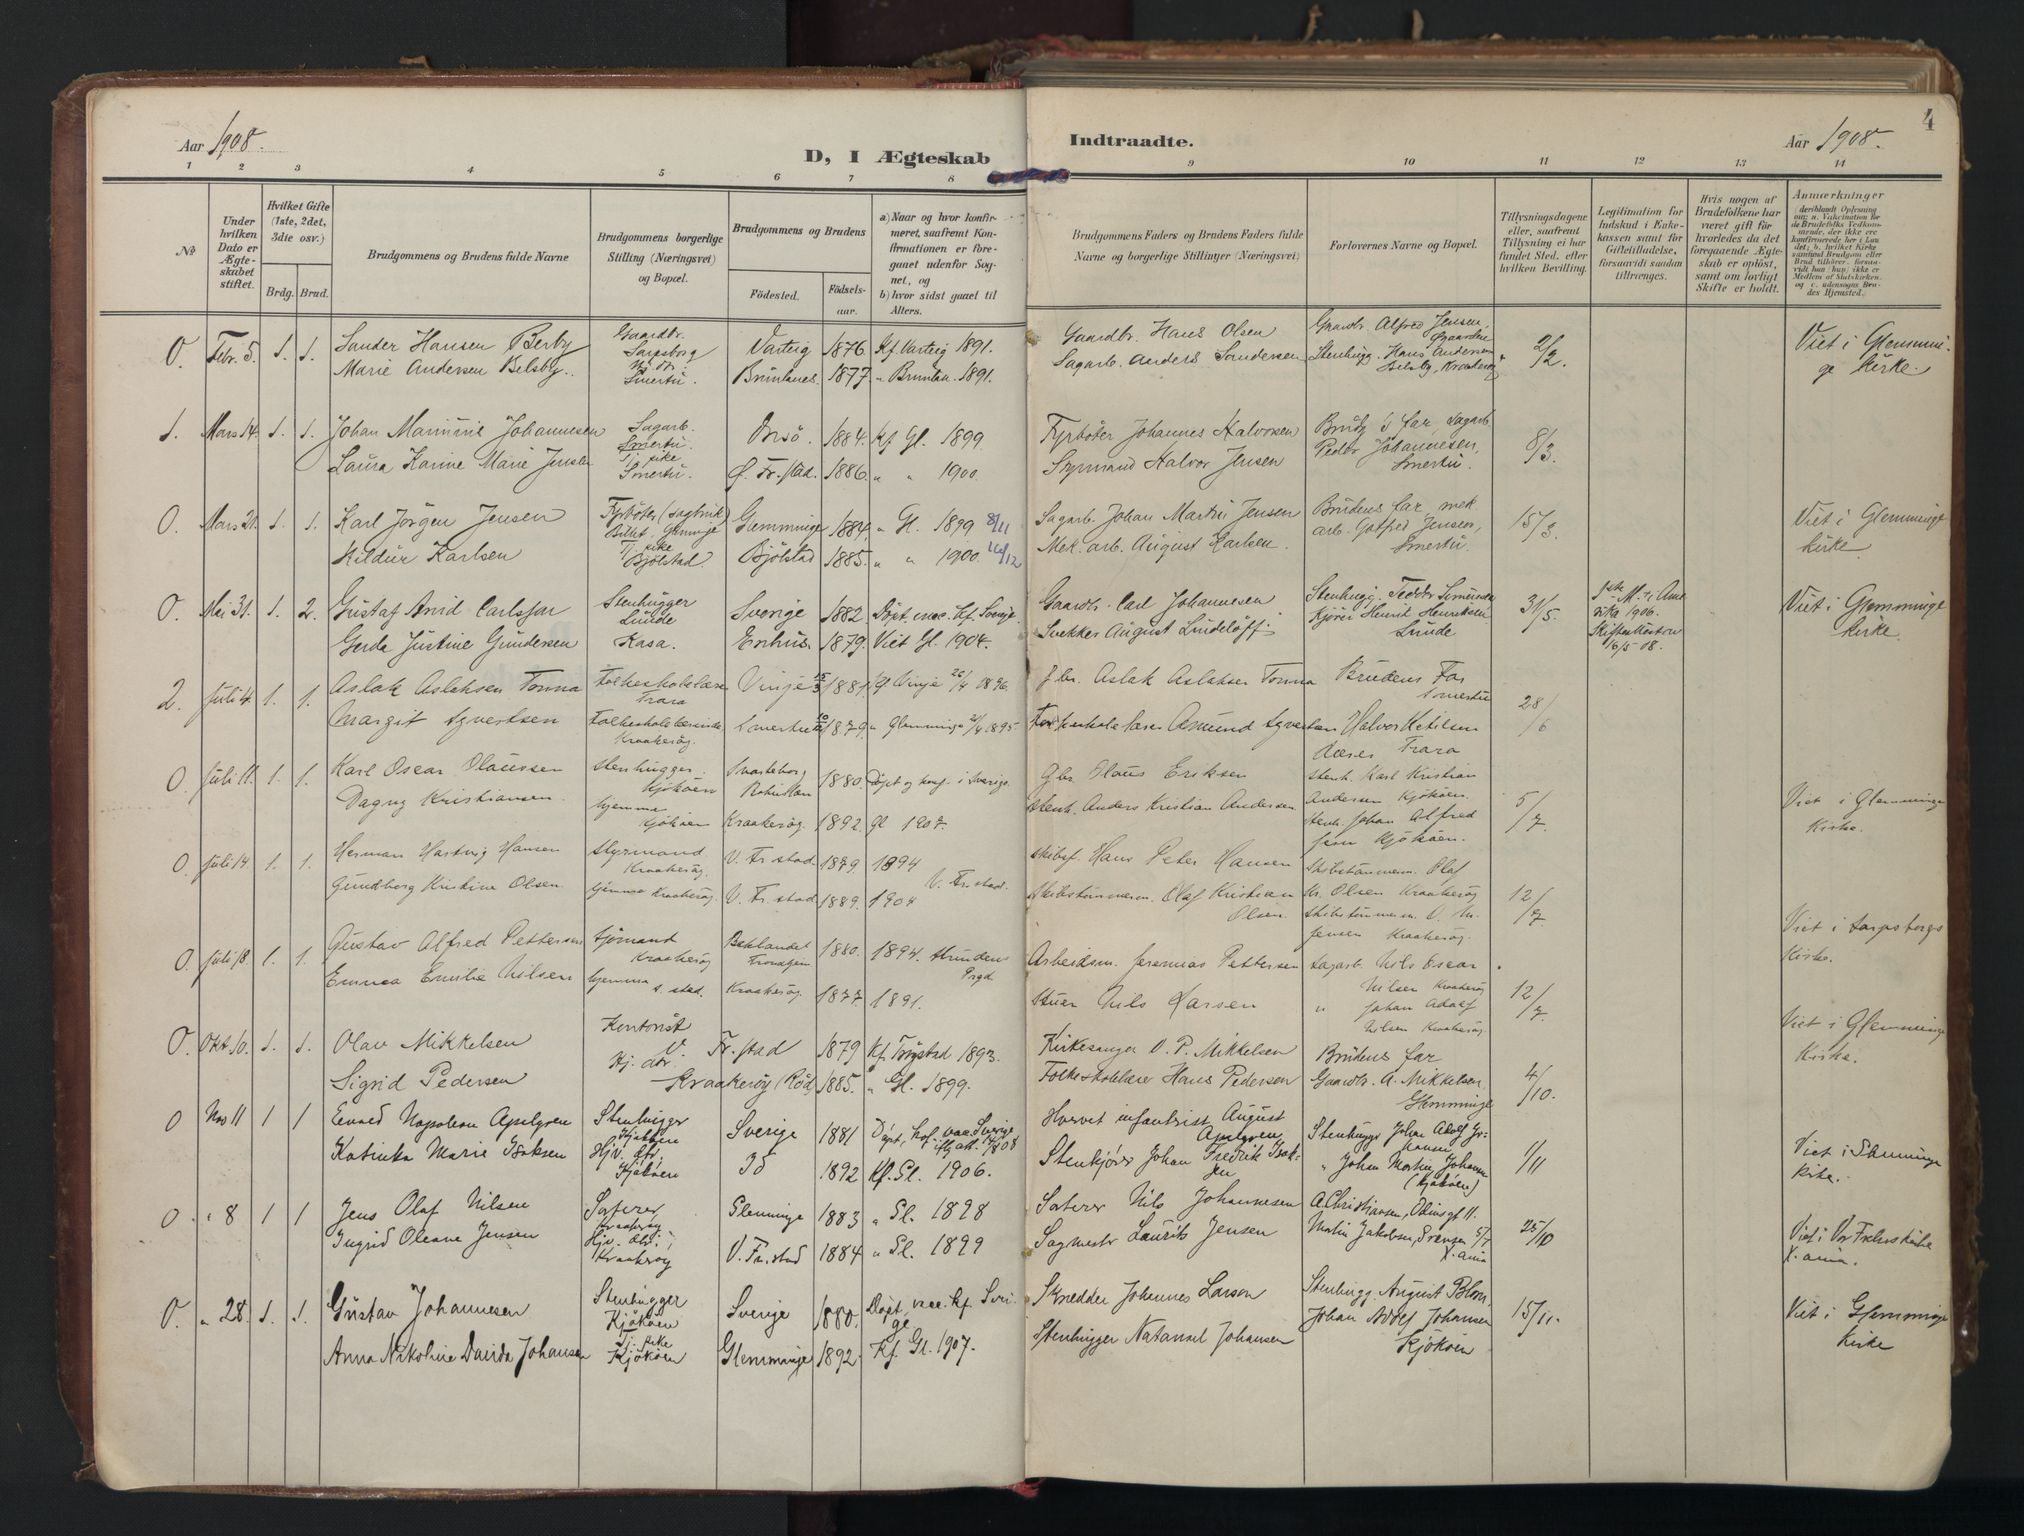 Aar 1908.
D, I Ægteskab
1 2 3 4 5 6 7 8
No
Under hvilken Dato er Ægteskabet stiftet.
Hvilket Gifte (1ste, 2det, 3die osv.)
Brdg. Brud.
Brudgommens og Brudens fulde Navne
Brudgommens borgerlige Stilling (Næringsvei) og Bopæl.
Brudgommens og Brudens
Fødested.
Fødselsaar.
a) Naar og hvor konfirmeret, saafremt Konfirmationen er foregaaet udenfor Sognet, og
b) hvor sidst gaaet til Alters.
O. Febr. 5. 1. 1. Sander Hansen Berby Gaardbr. Sarpsborg Varteig 1876. Kf. Varteig 1891.
Marie Andersen Belsby. Smertu. 1877 " 1891.
1. Mars 14. 1. 1. Johan Marinius Johannesen Sagarb. Smertu. Onsö. 1884. Kf. Gl. 1899
Laura Karine Marie Jensen Tj. pike Smertu. Ø. Fr.stad. 1886. " " 1900.
O. Mars 21. 1. 1. Karl Jörgen Jensen Fyrböter Glemminge 1884. " Gl. 1899 8/11
Hildur Karlsen Tj. pike Bjölstad. Bjölstad 1885. " " 1900.
O. Mai 31. 1. 2. Gustaf Arvid Carlsson Stenhugger Lunde Sverige 1882 Döpt, vac. Kf. Sverige
Gerda Justine Gundersen Kasa. Enhus. 1879. Viet Gl. 1904.
2. Juli 4. 1. 1. Aslak Aslaksen Tonna Folkeskolelærer Trara Vinje 1881. Kf. Vinje 26/4 0896.
Margit Syvertsen Folkeskolelærerinde Kraakerøy. Smertu 1879. " Glemminge 2/4 1895
O. Juli 11. 1. 1. Karl Oscar Olaussen Stenhugger. Kjökøen Svarteborg Bohuslän 1880. Döpt og konf. i Sverige.
Dagny Kristiansen. hjemme Kjökøen Kraakerøy. 1892. Gl 1907.
O. Juli 14. 1. 1. Herman Hartvig Hansen Styrmand. Kraakerøy. V. Fr.stad. 1879. 1894
Gundborg Kristine Olsen. hjemme Kraakerøy. V. Fr.stad. 1889. 1904 V. Fr.stad.
O. Juli 18. 1. 1. Gustav Alfred Pettersen Sjömand Kraakerøy Baklandet Trondhjem 1880. 1894. Strinden Prgd.
Emma Emilie Nilsen hjemme s. sted. Kraakerøy. 1877. 1891.
O. Okt. 10. 1. 1. Olav Mikkelsen Kontorist V. Fr.stad 1879 Kf. Trøgstad 1893.
Sigrid Pedersen Hj. dtr. Kraakerøy (Röd) 1885. " Gl. 1899.
O Nov 11 1 1 Napoleon Apelgren Stenhugger Kjøkøen Sverige 1881 Döpt, kof. vac. Sverige
Katinka Marie Isaksen Hjv. dtr, Kjøkøen 1892 Kf. Gl. 1906.
O " 8 1 1 Jens Olaf Nilsen Kraakerøy Glemminge 1883 " Gl. 1898
Ingrid Oleane Jensen Hjv. dtr., Kraakerøy V. Fr.stad 1884 " Gl. 1899
O. " 28. 1. 1. Gustav Johannesen Stenhugger Kjököen Sverige 1880. Döpt, vac. Kf. Sverige
Anna Nikoline Davida Johansen Tj. pike Kjököen Glemminge 1892. Kf. Gl. 1907.
4
Indtraadte.
Aar 1908.
9 10 11 12 13 14
Brudgommens Faders og Brudens Faders fulde Navne og borgerlige Stillinger (Næringsvei)
Forlovernes Navne og Bopæl.
Tillysningsdagene eller, saafremt Tillysning ei har fundet Sted, efter hvilken Bevilling.
Legitimation for Indskud i Enkekassen samt for Giftetilladelse, forsaavidt saadan tiltrænges.
Hvis nogen af Brudefolkene har været gift før hvorledes da det foregaaende Ægteskab er opløst, samt om lovligt Skifte er holdt.
Anmærkninger
Gaardbr. Hans Olsen Gaardb. Alfred Jensen, 2/2. Viet i Glemminge Kirke.
Sagarb. Anders Sandersen Stenhugg. Hans Andersen Belsby, Kraakerøy
Fyrböter Johannes Halvorsen Brudg's far, Sagarb. 8/3.
Styrmand Halvor Jensen Peder Johannesen, Smertu.
Sagarb. Johan Martin Jensen Brudens far, mek. 15/3. Viet i Glemminge kirke.
Mek. arb. August Karlsen. arb. Gotfred Jensen, Smertu.
Gaardb. Carl Johannesen Stenhugg. Teodor Simensen 31/5. Viet i Glemminge kirke.
August Lindelöff Kjörer Henrik Henriksen Lunde 1906. 16/5 08.
Gbr. Aslak Aslaksen Tonna Brudens Far Smertu 28/6
Folkeskolelærer Asmund Syvertsen Halvor Ketilsen Lærer Trara
Gbr. Olaus Eriksen Stenh. Karl Kristian 5/7. Viet i Glemminge Kirke.
Stenh. Anders Kristian Andersen. Andersen Kjökøen. Stenh. Johan Alfred Kjökøen.
Skibsf. Hans Peter Hansen Skibstømmerm. Olaf 12/7
Skibstømmerm. Olaf Kristian Olsen. Kr. Olsen Kraakerøy Skibstømmerm. Jensen Kraakerøy.
Arbeidsm. Jeremias Pettersen Sagarb. Nils Oscar Nilsen Kraakerøy 12/7. Viet i Sarpsborgs Kirke.
Stuer Nils Larsen " Johan Adolf Nilsen Kraakerøy.
Kirkesanger O. P. Mikkelsen Brudens far 4/10. Viet i Glemminge Kirke.
Folkeskolelærer Hans Pedersen Gaardb. A. Mikkelsen, Glemminge
Hvervet infantrist August Apelgren Stenhugger Johan Adolf Johansen 1/11 Viet i Glemminge kirke.
Stenkjører Johan Fredrik Isaksen " Johan Martin Johansen (Kjøkøen)
Nils Johannesen A. Christiansen, Odinsgt 11. 25/10 Viet i Vor Frelsers kirke X.ania.
Sagmestr Laurits Jensen Martin Jakobsen, X.ania
Skrædder Johannes Larson Stenhugg. August Blom, 15/11. Viet i Glemminge Kirke
Stenhugger Natanael Johansen Johan Adolf Johansen Kjököen